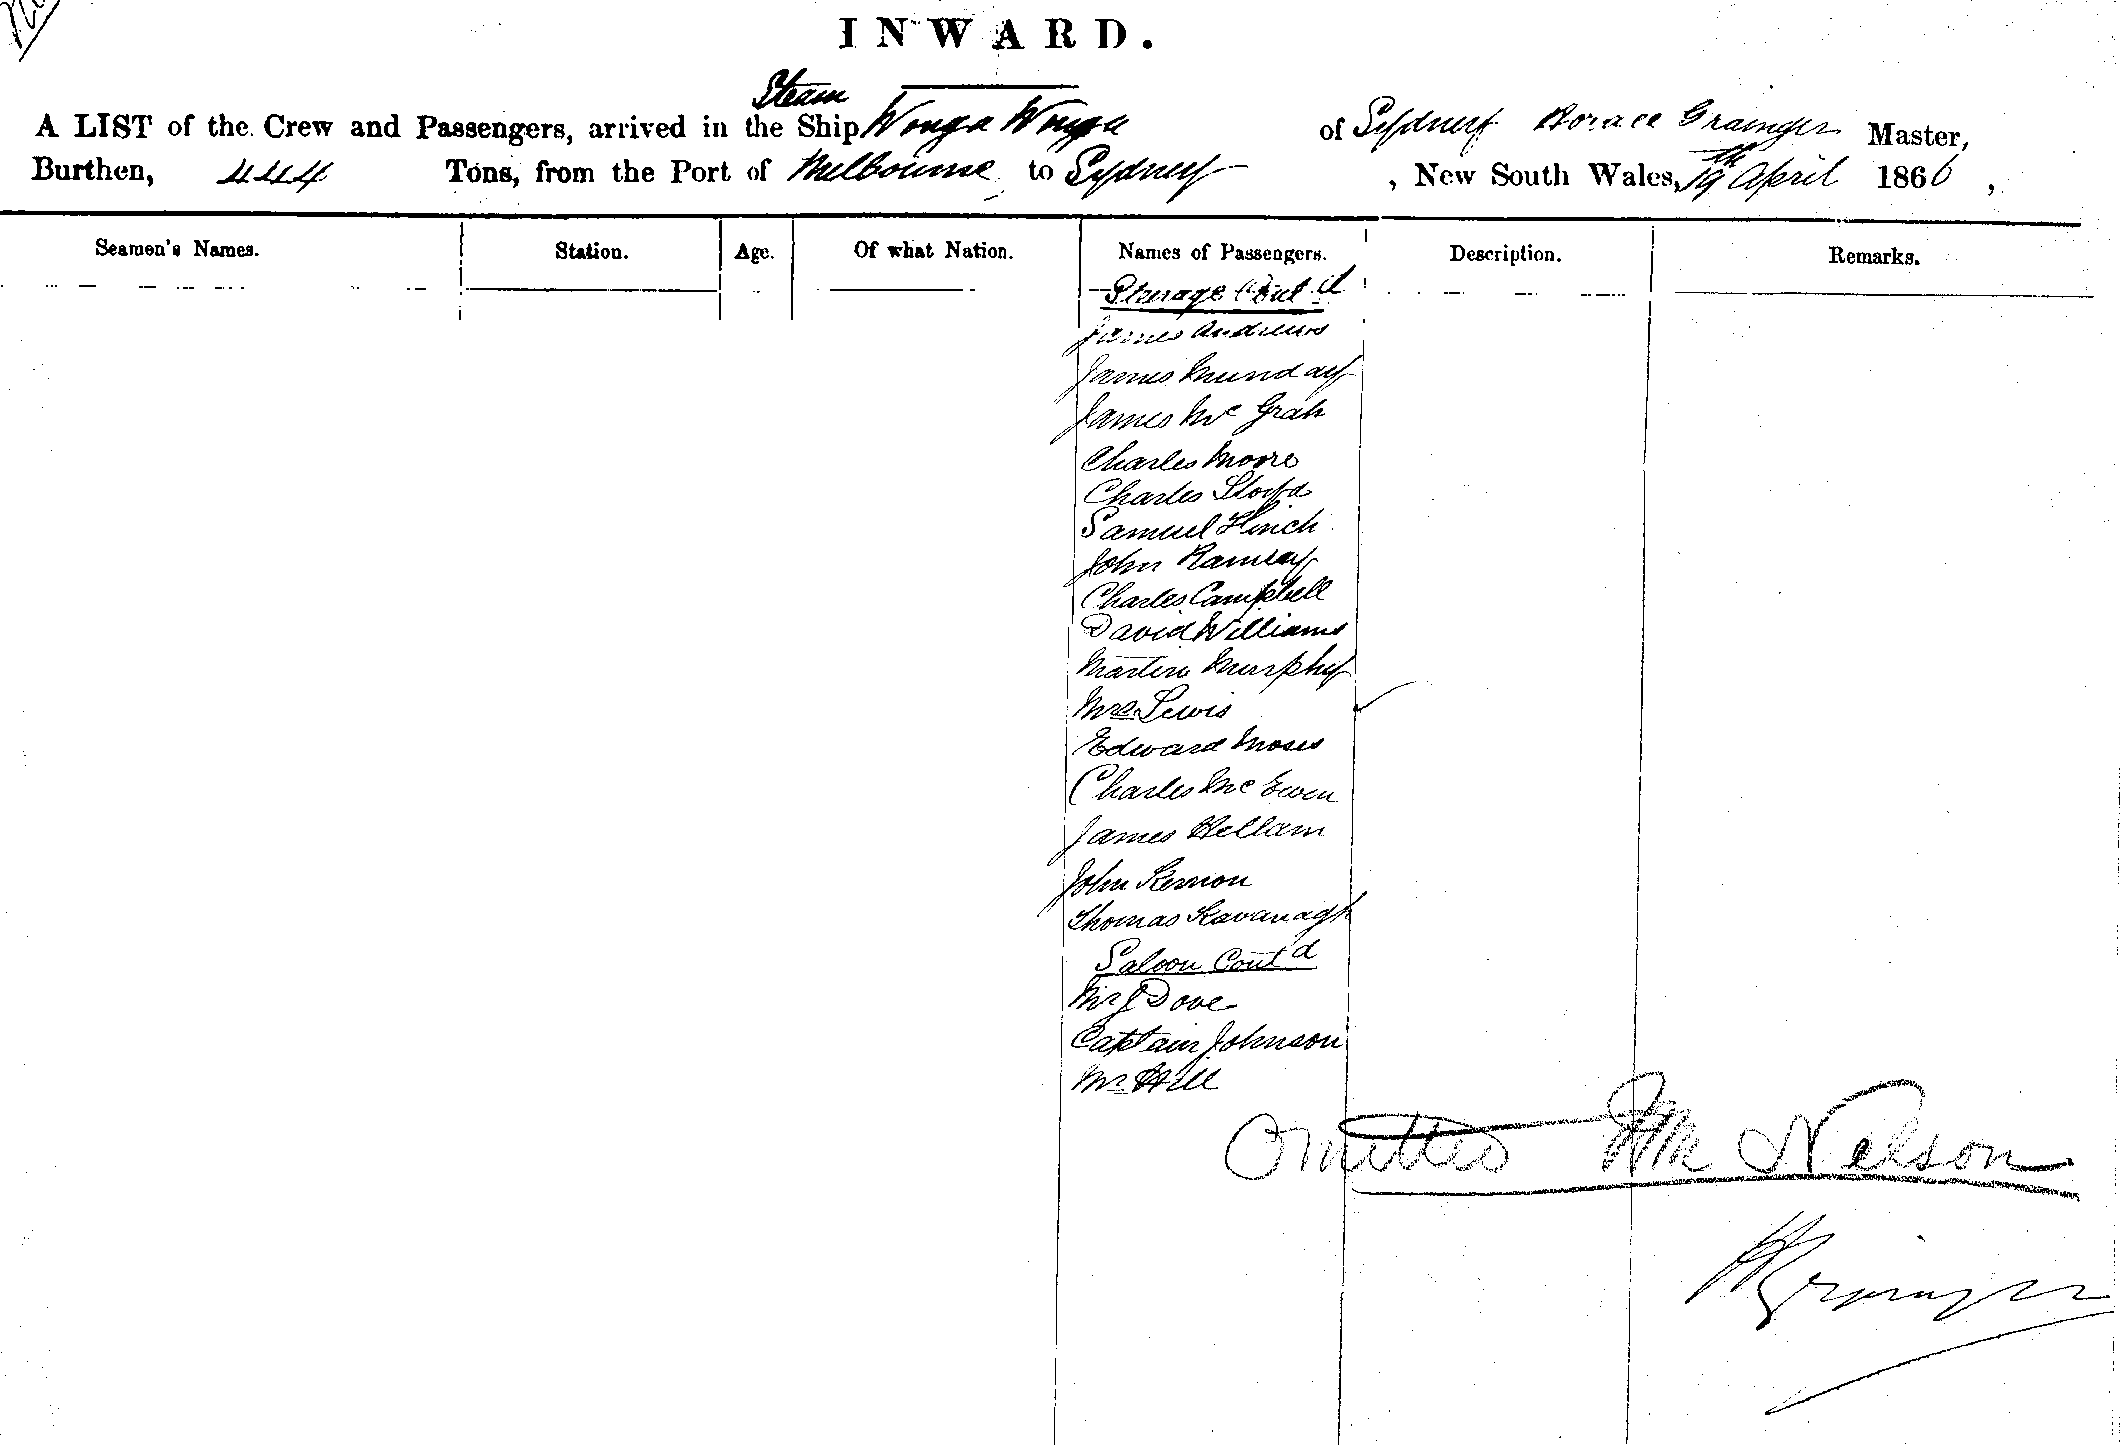 INWARD.
Steam
A LIST of the Crew and Passengers, arrived in the Ship Wonga Wonga of Sydney Horace Grainger Master,
Burthen, 444 Tons, from the Port of Melbourne to Sydney , New South Wales, 19th April 1866 ,
Seamen's Names. Station. Age. Of what Nation. Names of Passengers. Description. Remarks.
Steerage Cont'd
James Andrews
James Munday
James McGrah
Charles Moore
Charles
Samuel Hinch
John Ramsay
Charles Campbell
David Williams
Martin Murphy
Mrs Lewis
Edward Moses
Charles McEwen
James Hellam
John Kernon
Thomas Kavanagh
Saloon Cont'd
Mr J Dove
Captain Johnson
Mr Hill
Omitted Wm Nelson
H Grainger